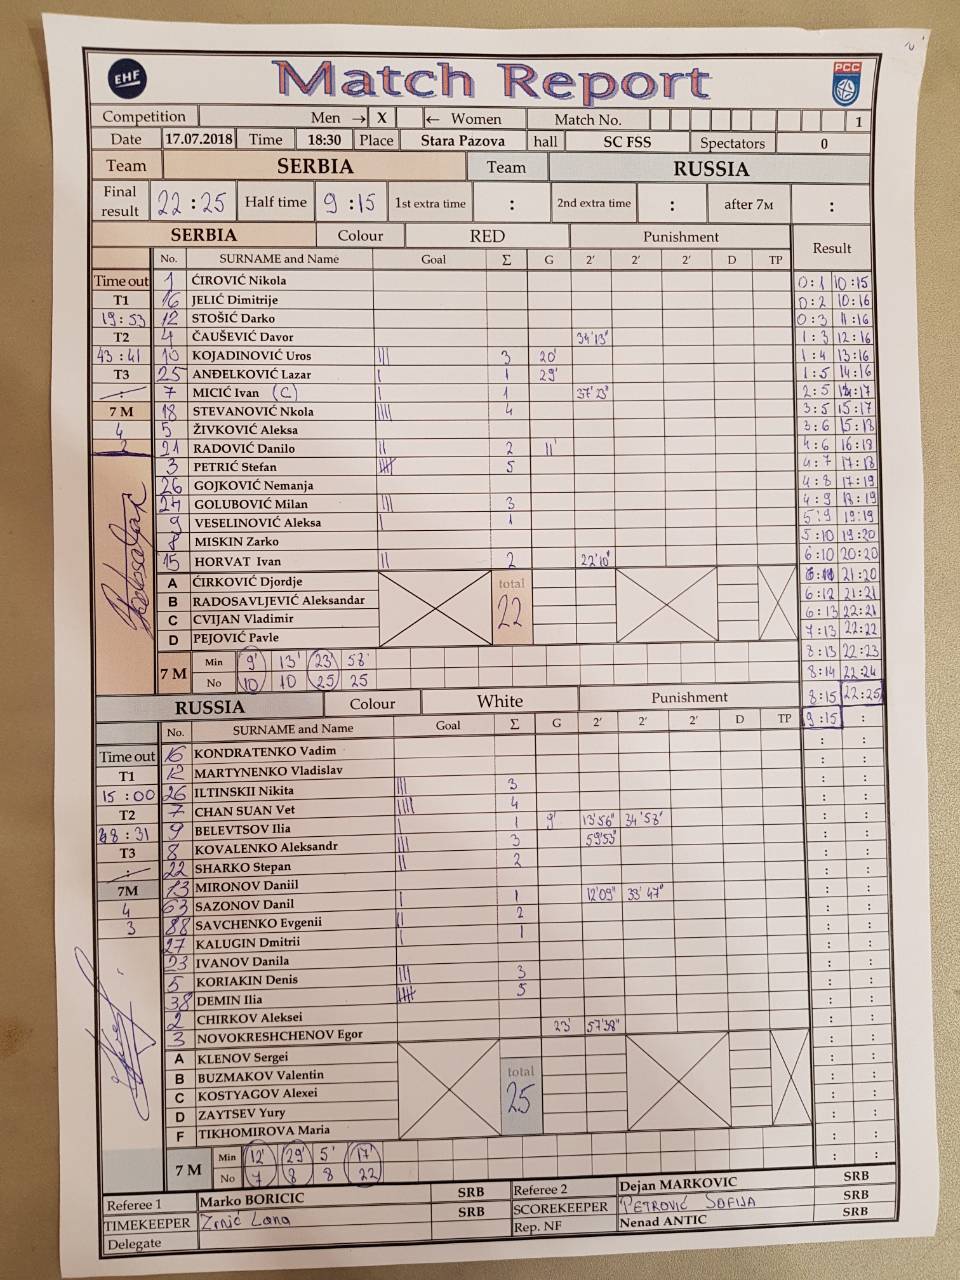 EHF
Match Report
РСС
Competition Men → X ← Women Match No. 1
Date 17.07.2018 Time 18:30 Place Stara Pazova hall SC FSS Spectators 0
Team SERBIA Team RUSSIA
Final result 22 : 25 Half time 9 : 15 1st extra time : 2nd extra time : after 7M :
SERBIA Colour RED Punishment Result
No. SURNAME and Name Goal Σ G 2' 2' 2' D TP
Time out 1 ĆIROVIĆ Nikola 0:1 10:15
T1 16 JELIĆ Dimitrije 0:2 10:16
19:53 12 STOŠIĆ Darko 0:3 11:16
T2 4 ČAUŠEVIĆ Davor 34'13" 1:3 12:16
43:41 10 KOJADINOVIĆ Uros ||| 3 20' 1:4 13:16
T3 25 ANĐELKOVIĆ Lazar | 1 29' 1:5 14:16
: 7 MICIĆ Ivan (C) | 1 37'23" 2:5 14:17
7 M 18 STEVANOVIĆ Nkola |||| 4 3:5 15:17
4 5 ŽIVKOVIĆ Aleksa 3:6 15:18
2 21 RADOVIĆ Danilo || 2 11' 4:6 16:18
3 PETRIĆ Stefan 5 4:7 17:18
26 GOJKOVIĆ Nemanja 4:8 17:19
27 GOLUBOVIĆ Milan ||| 3 4:9 18:19
9 VESELINOVIĆ Aleksa | 1 5:9 19:19
8 MISKIN Zarko 5:10 19:20
15 HORVAT Ivan || 2 22'10" 6:10 20:20
A ĆIRKOVIĆ Djordje total 22 6:11 21:20
B RADOSAVLJEVIĆ Aleksandar 6:12 21:21
C CVIJAN Vladimir 6:13 22:21
D PEJOVIĆ Pavle 7:13 22:22
7 M Min 9' 13' 23' 58' 8:13 22:23
No 10 10 25 25 8:14 22:24
RUSSIA Colour White Punishment 8:15 22:25
No. SURNAME and Name Goal Σ G 2' 2' 2' D TP 9:15 :
Time out 16 KONDRATENKO Vadim
T1 12 MARTYNENKO Vladislav
15:00 26 ILTINSKII Nikita ||| 3
T2 7 CHAN SUAN Vet |||| 4
38:31 9 BELEVTSOV Ilia | 1 9' 13'56" 34'58"
T3 8 KOVALENKO Aleksandr ||| 3 59'53"
: 22 SHARKO Stepan || 2
7M 13 MIRONOV Daniil
4 63 SAZONOV Danil | 1 12'09" 33'47"
3 88 SAVCHENKO Evgenii || 2
27 KALUGIN Dmitrii | 1
23 IVANOV Danila
5 KORIAKIN Denis ||| 3
38 DEMIN Ilia 5
2 CHIRKOV Aleksei
3 NOVOKRESHCHENOV Egor 23' 57'38"
A KLENOV Sergei total 25
B BUZMAKOV Valentin
C KOSTYAGOV Alexei
D ZAYTSEV Yury
F TIKHOMIROVA Maria
7 M Min 12' 29' 5' 17'
No 7 8 8 22
Referee 1 Marko BORICIC SRB Referee 2 Dejan MARKOVIC SRB
TIMEKEEPER Zrnić Lana SRB SCOREKEEPER PETROVIĆ SOFIJA SRB
Delegate Rep. NF Nenad ANTIC SRB